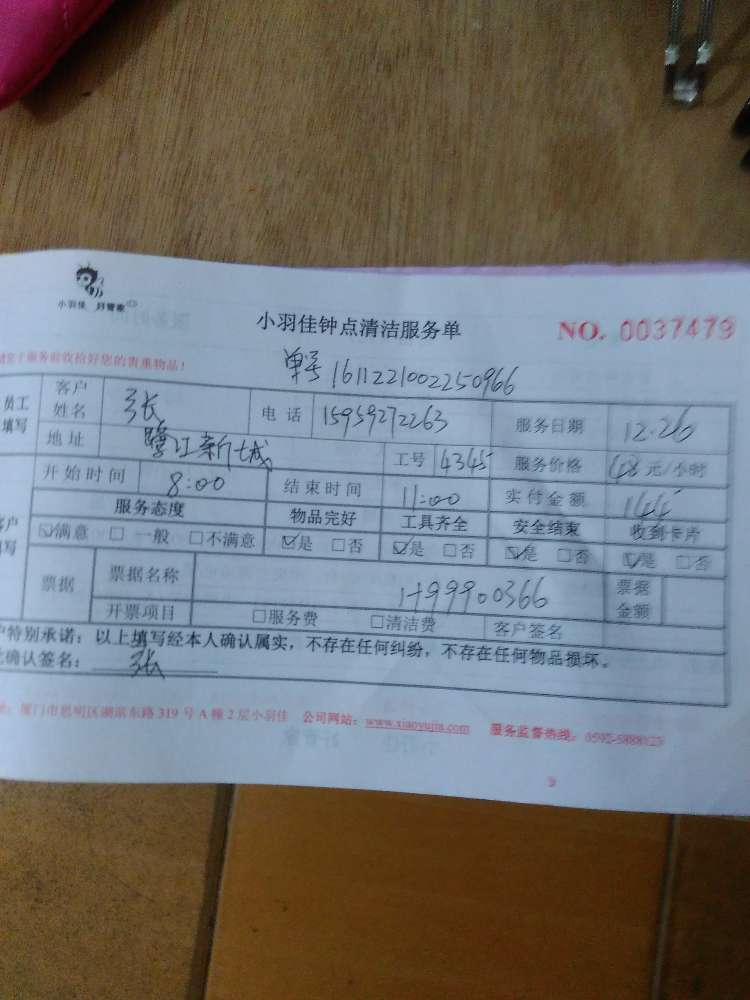 小羽佳 好管家
小羽佳钟点清洁服务单 NO. 0037479
服务前收拾好您的贵重物品!
单号 1611221002250966
员工填写 客户姓名 张 电话 15959272263 服务日期 12.26
地址 鹭江新城 工号 4345 服务价格 48 元/小时
开始时间 8:00 结束时间 11:00 实付金额 144
服务态度 物品完好 工具齐全 安全结束 收到卡片
☑满意 □一般 □不满意 ☑是 □否 ☑是 □否 ☑是 □否 ☑是 □否
票据 票据名称 1+99900366 票据金额
开票项目 □服务费 □清洁费 客户签名
户特别承诺:以上填写经本人确认属实,不存在任何纠纷,不存在任何物品损坏。
确认签名: 张
厦门市思明区湖滨东路 319 号 A 幢 2 层小羽佳 公司网站:www.xiaoyujia.com 服务监督热线:0592-5888123